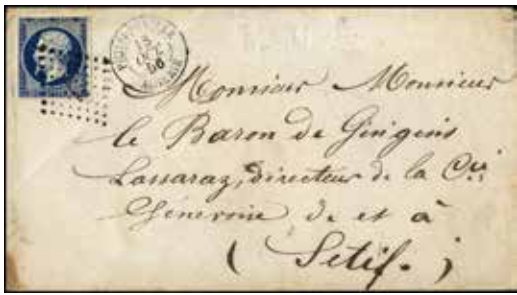 ALGERIE
Monsieur Monsieur
le Baron de Gingins
Lassaraz, directeur de la Cie
Génévoise de et à
( Setif. )